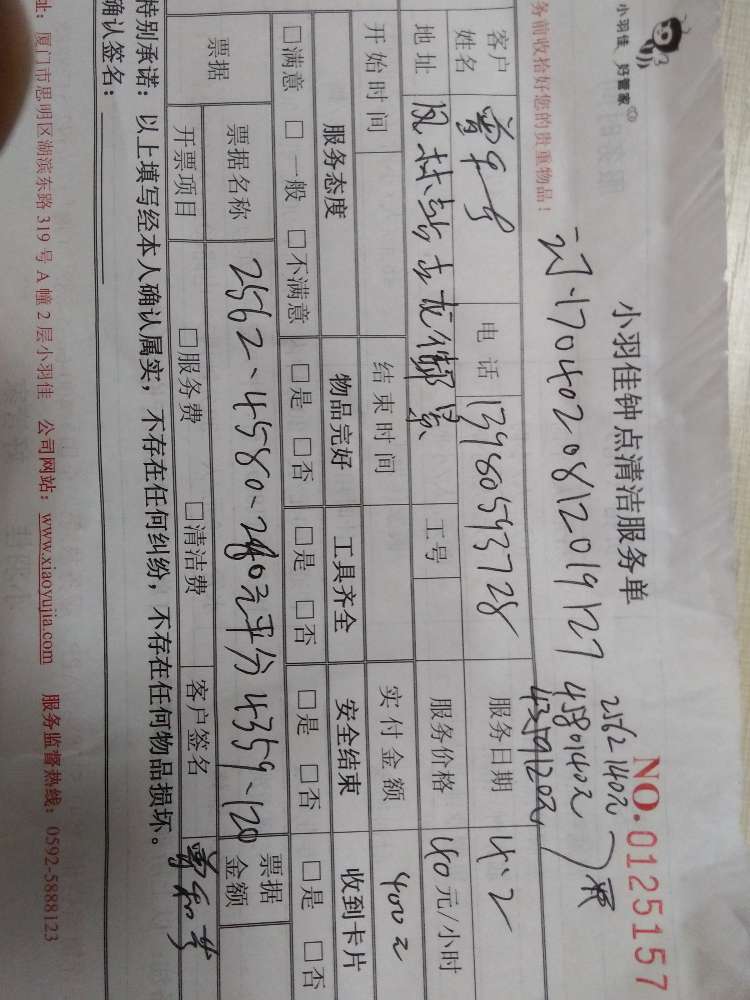 小羽佳 好管家
务前收拾好您的贵重物品！
小羽佳钟点清洁服务单
NO.0125157
1704020812019127
2562140元
4580140元
4359120元
客户姓名 电话 13980593728 服务日期 4.2
地址 工号 服务价格 40元/小时
开始时间 结束时间 实付金额 400元
服务态度 物品完好 工具齐全 安全结束 收到卡片
□满意 □一般 □不满意 □是 □否 □是 □否 □是 □否 □是 □否
票据 票据名称 2562、4580、280元平分4359、120 票据金额
开票项目 □服务费 □清洁费 客户签名
特别承诺：以上填写经本人确认属实，不存在任何纠纷，不存在任何物品损坏。
确认签名：
址：厦门市思明区湖滨东路 319 号 A 幢 2 层小羽佳 公司网站：www.xiaoyujia.com 服务监督热线：0592-5888123